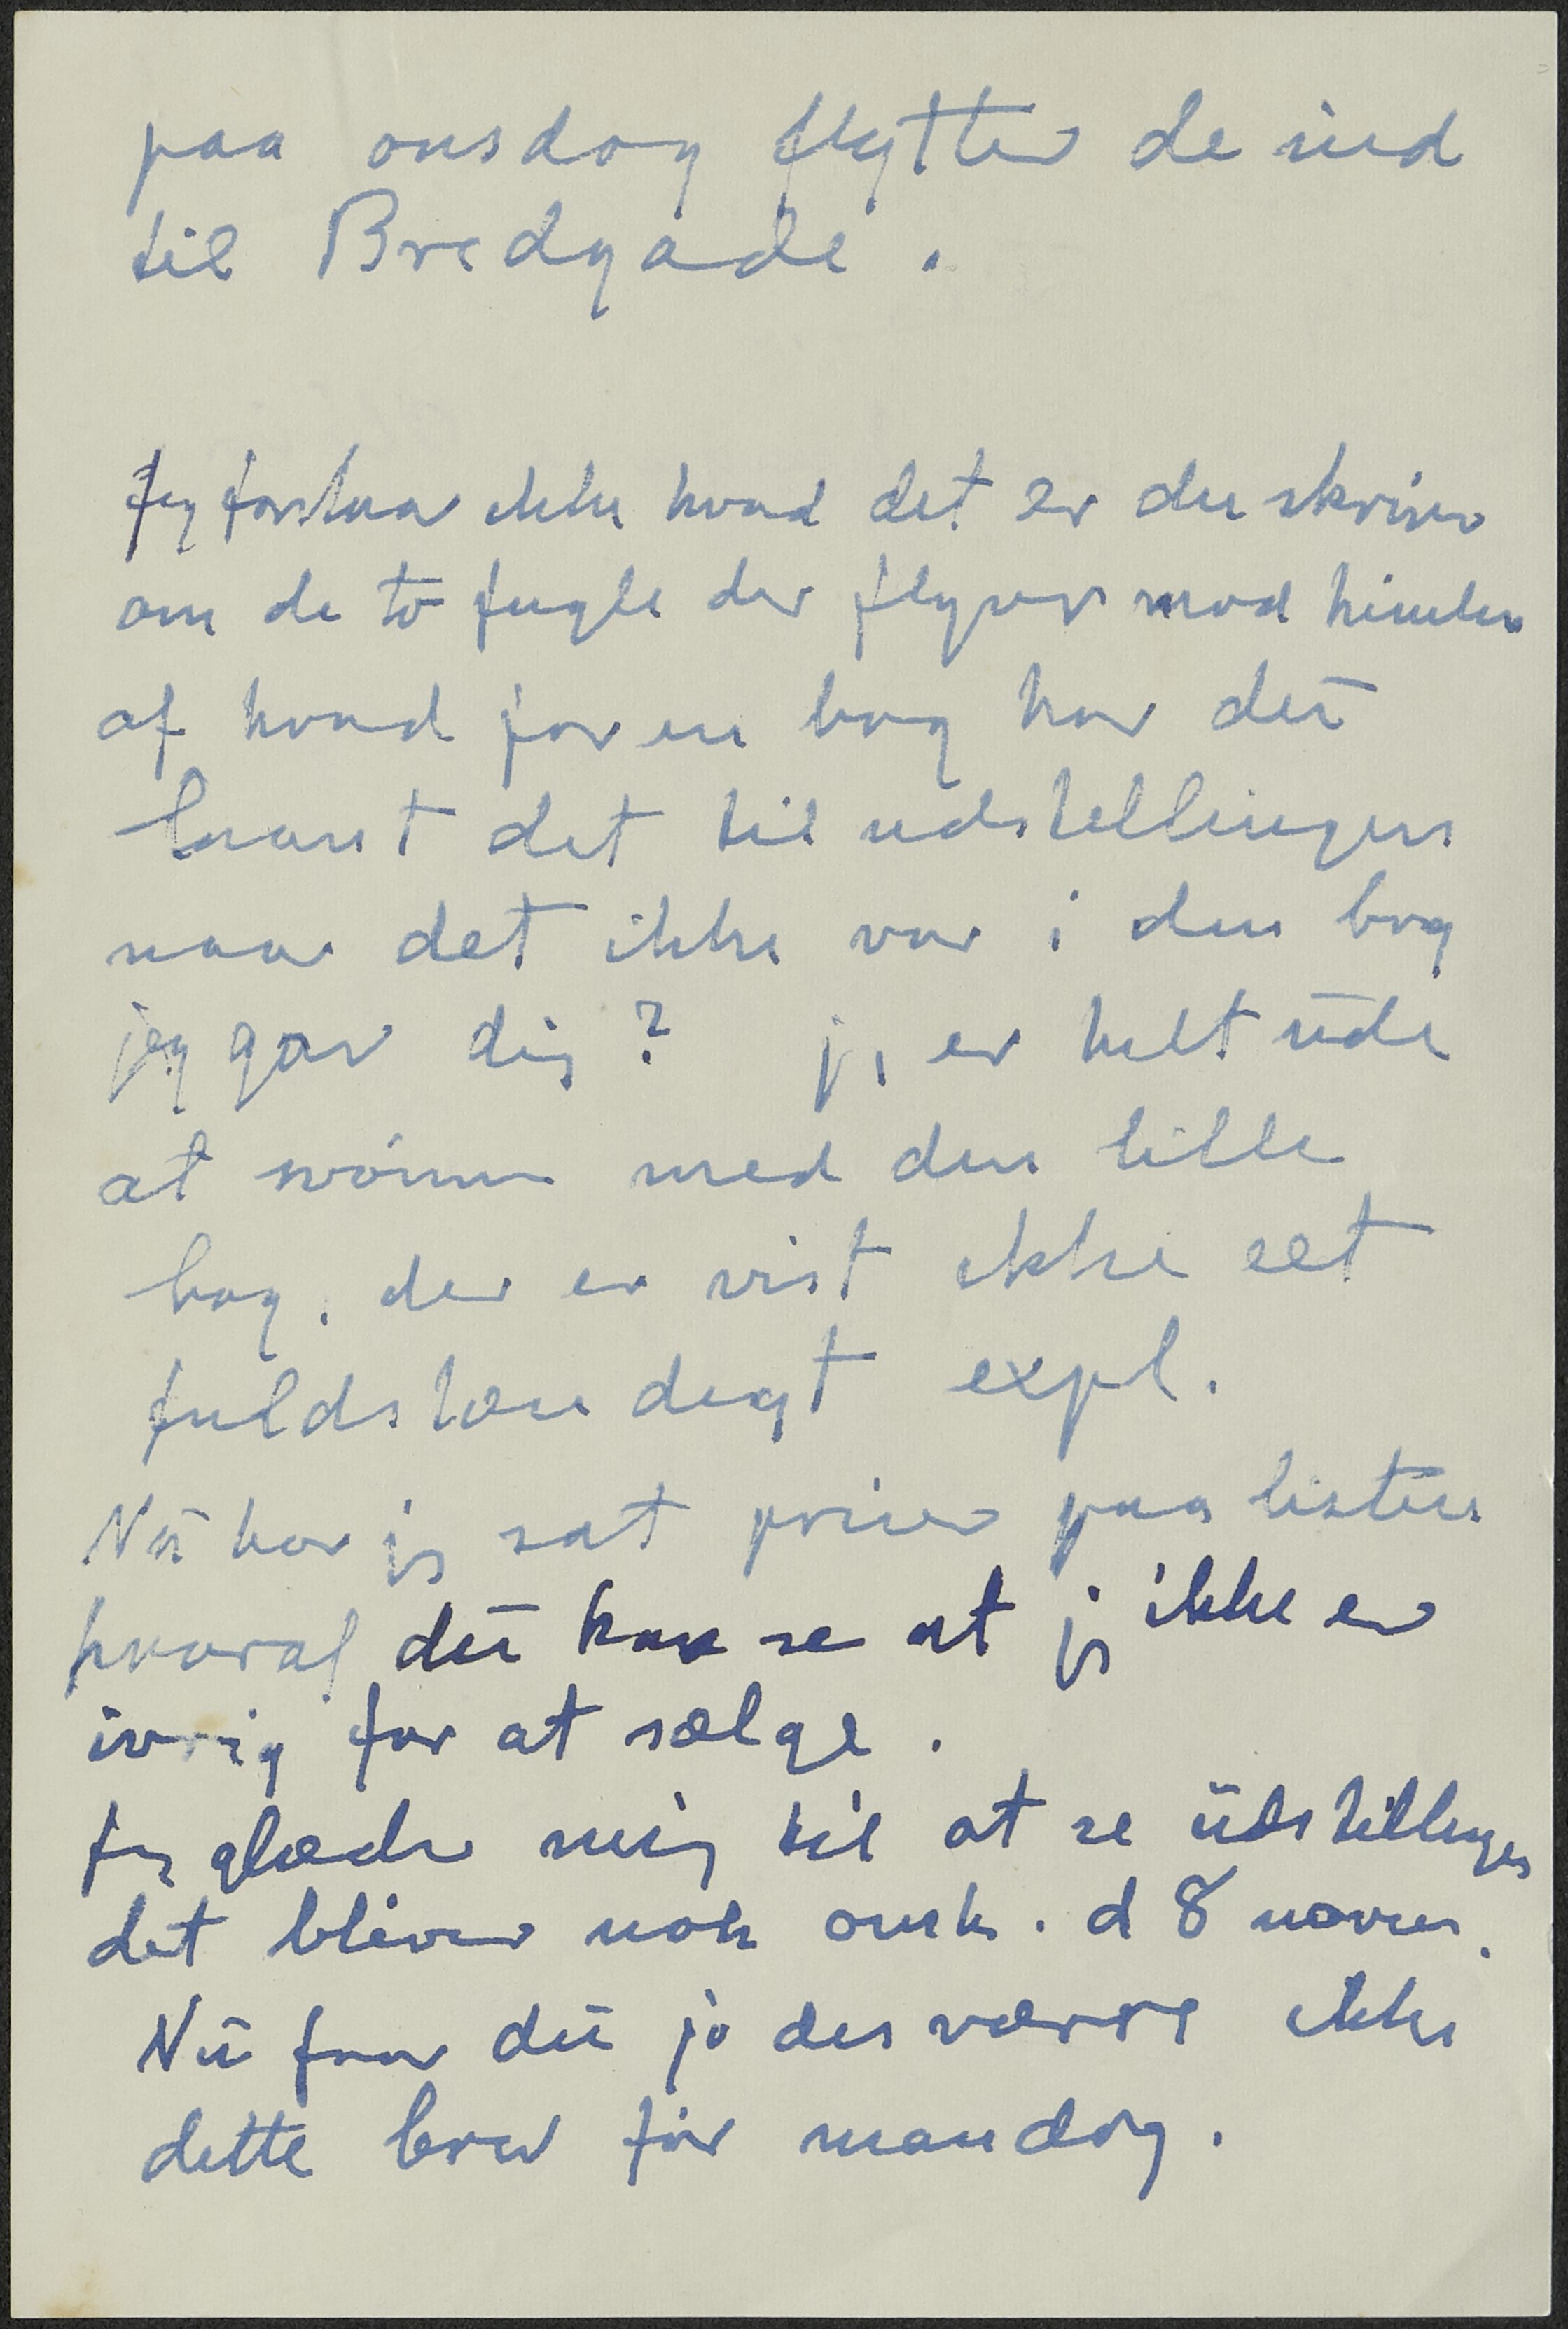 paa onsdag flytter de ind
til Bredgade.
Jeg forstaar ikke hvad det er du skriver
om de to fugle der flyver mod himlen
af hvad for en bog har du
laant det til udstillingen
naar det ikke var i den bog
jeg gav dig? jeg er helt ude
at svömme med den lille
bog. der er vist ikke eet
fuldstændigt expl.
Nu har jeg sat priser paa listen
hvoraf du kan se at jeg ikke er
ivrig for at sælge.
Jeg glæder mig til at se udstillingen
det bliver nok onsk. d 8 novem.
Nu faar du jo desværre ikke
dette brevför mandag.